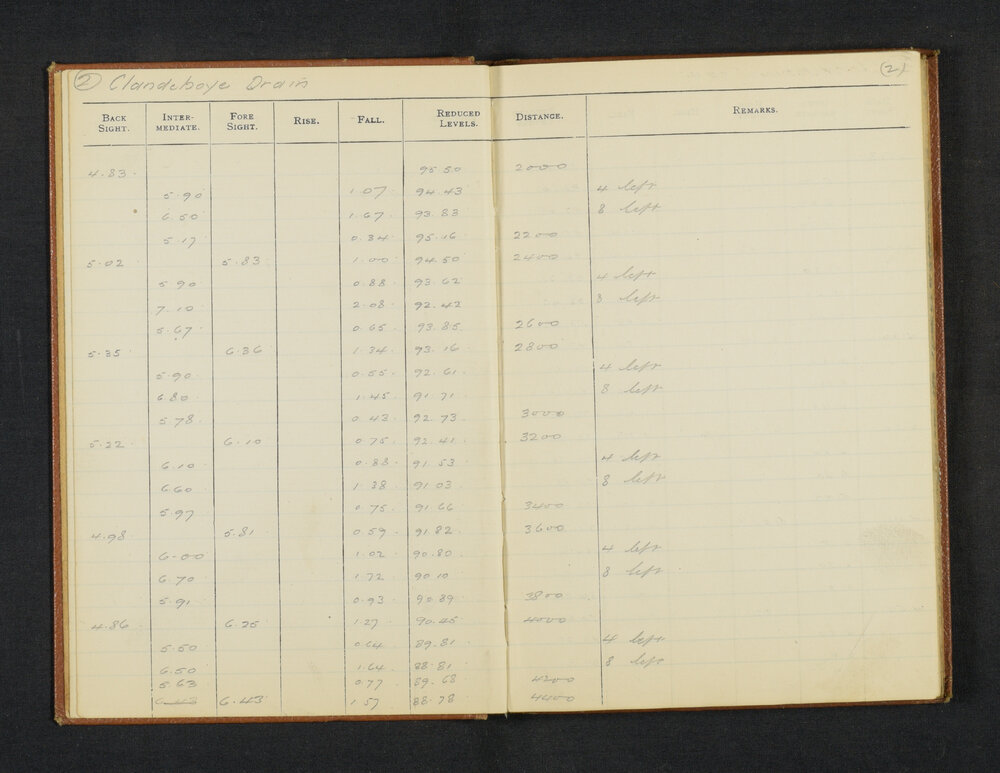 (2) Clandeboye Drain (2)
BACK SIGHT. INTER-MEDIATE. FORE SIGHT. RISE. FALL. REDUCED LEVELS. DISTANCE. REMARKS.
4.83 95.50 2000
5.90 1.07 94.43 4 left
6.50 1.67 93.83 8 left
5.17 0.34 95.16 2200
5.02 5.83 1.00 94.50 2400
5.90 0.88 93.62 4 left
7.10 2.08 92.42 8 left
5.67 0.65 93.85 2600
5.35 6.36 1.34 93.16 2800
5.90 0.55 92.61 4 left
6.80 1.45 91.71 8 left
5.78 0.43 92.73 3000
5.22 6.10 0.75 92.41 3200
6.10 0.88 91.53 4 left
6.60 1.38 91.03 8 left
5.97 0.75 91.66 3400
4.98 5.81 0.59 91.82 3600
6.00 1.02 90.80 4 left
6.70 1.72 90.10 8 left
5.91 0.93 90.89 3800
4.86 6.25 1.27 90.45 4000
5.50 0.64 89.81 4 left
6.50 1.64 88.81 8 left
5.63 0.77 89.68 4200
6.43 6.43 1.57 88.78 4400